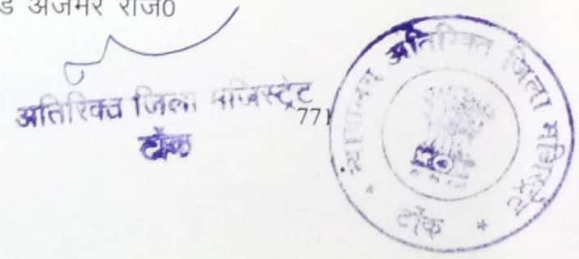 ड अजमेर राज0
अतिरिक्त जिला मजिस्ट्रेट
771
टोंक
न्यायालय अतिरिक्त जिला मजिस्ट्रेट
* टोंक *